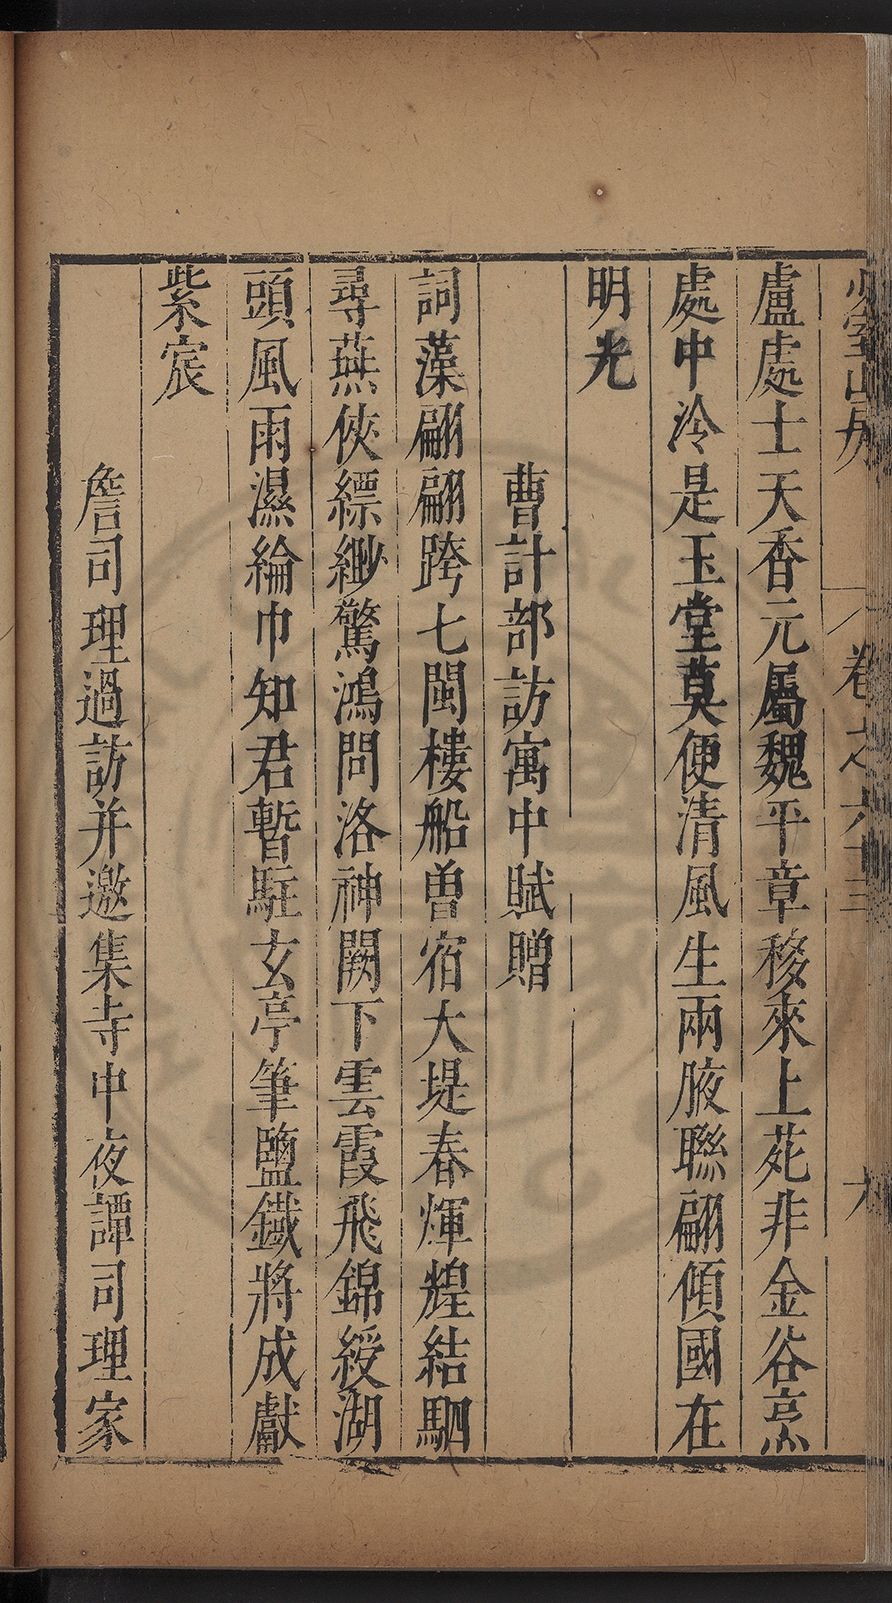 少室山房
卷之六十三
盧處士天香元屬魏平章移來上苑非金谷烹
處中泠是玉堂莫便清風生兩腋聯翩傾國在
明光
曹計部訪寓中賦贈
詞藻翩翩跨七閩樓船曾宿大堤春煇煌結駟
尋燕俠縹緲驚鴻問洛神闕下雲霞飛錦綬湖
頭風雨濕綸巾知君暫駐玄亭筆鹽鐵將成獻
紫宸
詹司理過訪并邀集寺中夜譚司理家